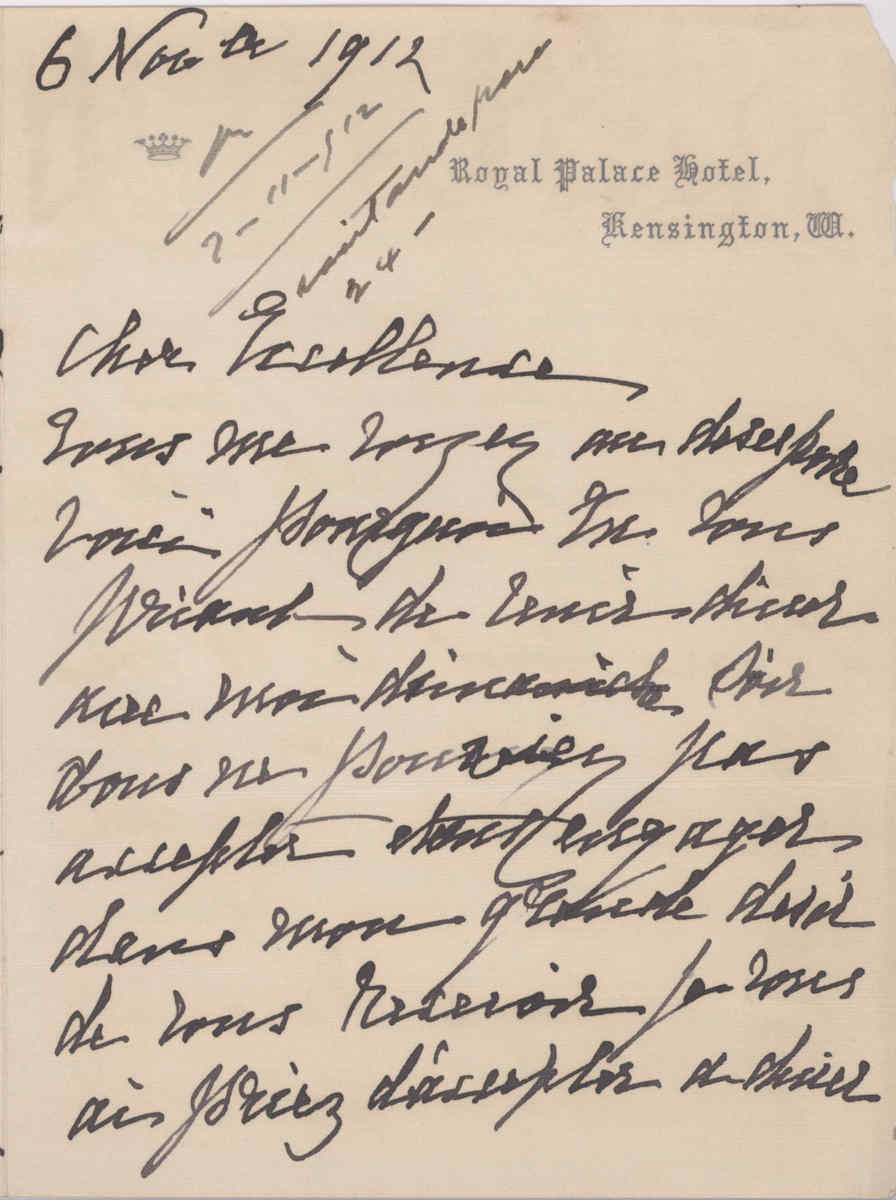 6 Nov 1912
Royal Palace Hotel,
Kensington, W.
Cher Excellence
Vous me voyez au desespoire
Voici pourquoi En vous
priant de venir diner
avec moi soir
Vous ne pouviez pas
accepter etant engager
dans mon grande desir
de vous recevoir je vous
ai priez d'accepter a diner